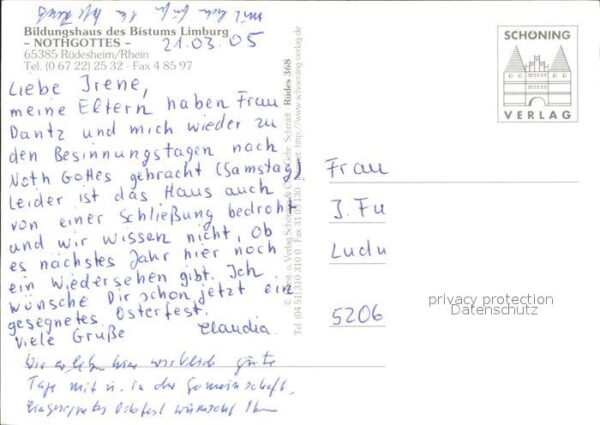 Bildungshaus des Bistums Limburg
– NOTHGOTTES –
65385 Rüdesheim/Rhein
Tel. (0 67 22) 25 32 - Fax 4 85 97
21.03.05
Liebe Irene,
meine Eltern haben Frau
Dantz und mich wieder zu
den Besinnungstagen nach
Noth Gottes gebracht (Samstag)
Leider ist das Haus auch
von einer Schließung bedroht
und wir wissen nicht, ob
es nächstes Jahr hier noch
ein Wiedersehen gibt. Ich
wünsche Dir schon jetzt ein
gesegnetes Osterfest.
Viele Grüße Claudia.
Wir erleben hier wirklich gute
Tage mit u. in der Gemeinschaft.
Ein gesegnetes Osterfest wünscht Ihnen
Rüdes 368
SCHÖNING
VERLAG
Frau
J. Fu
Ludw
5206
privacy protection
Datenschutz